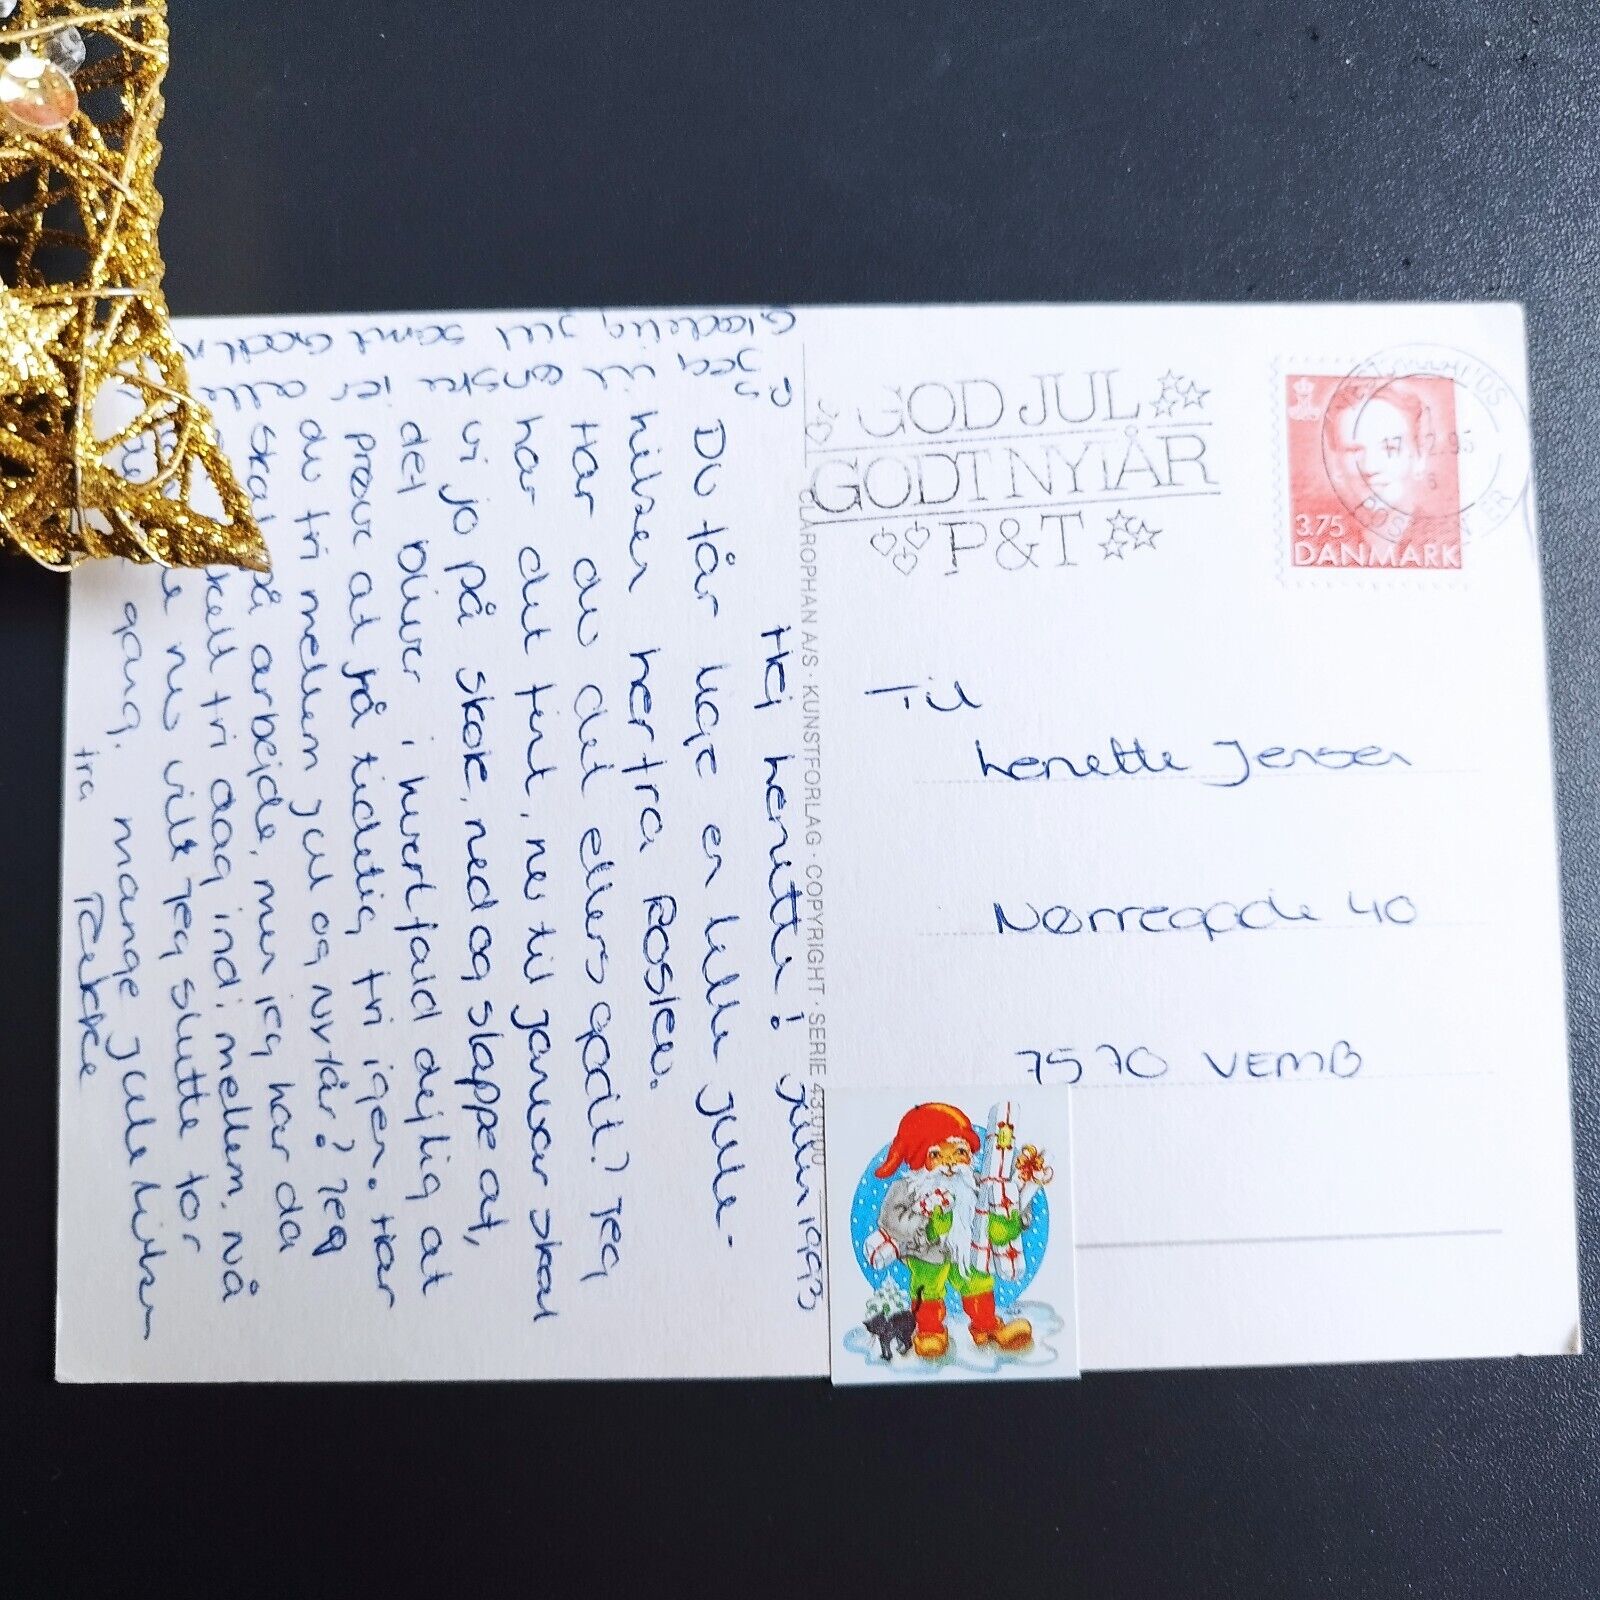 Hej Lenette! Julen 1993
Du får lige er lille jule-
hilsen her fra Roslev.
Har du det ellers godt? Jeg
har det fint, nu til januar skal
vi jo på skole, ned og slappe at,
det bliver i hvert fald dejlig at
prøve at få tidelig fri igen. Har
du fri mellem jul og nytår? Jeg
skal på arbejde, men jeg har da
fri dag ind i mellem. Nå
nu vil jeg slutte for
gang. Mange jule hilsen
fra
PS
Jeg vil ønske jer alle
Glædelig jul samt Godt
GOD JUL
GODT NYTÅR
P&T
3.75
DANMARK
17.12.93
CLAROPHAN A/S · KUNSTFORLAG · COPYRIGHT · SERIE
Til
Lenette Jensen
Nørregade 40
7570 VEMB